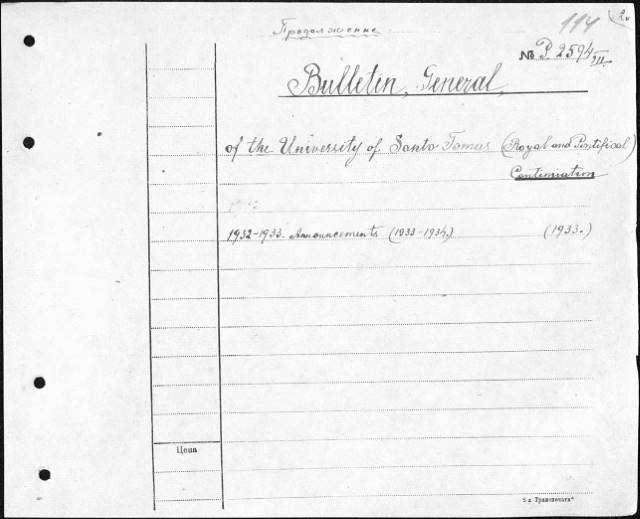 Продолжение
114
№ P. 2594 III.
Bulletin, General,
of the University of Santo Tomas (Royal and Pontifical)
Continuation
1932
1932-1933. Announcements (1933-1934.) (1933.)
Цена
5-я Транспечать